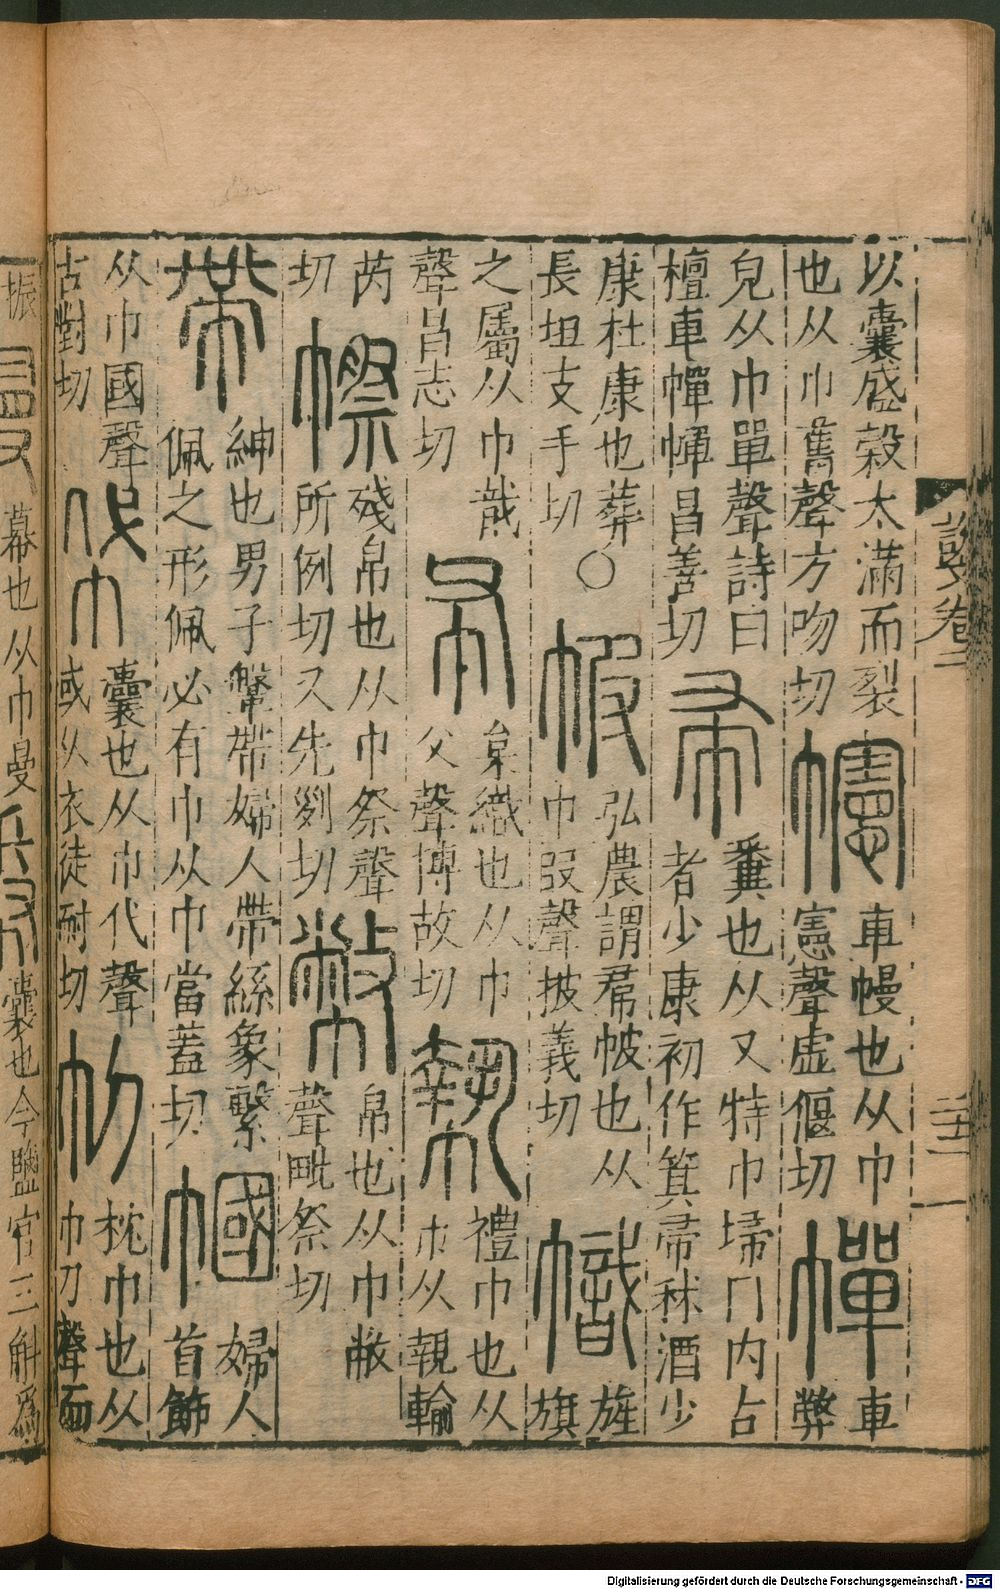 以囊盛穀太滿而裂
也从巾奮聲方吻切
幰
車幔也从巾
憲聲虛偃切
幝
車
弊
皃从巾單聲詩曰
檀車幝幝昌善切
帚
糞也从又特巾埽冂内古
者少康初作箕帚秫酒少
康杜康也葬○
長垣支手切
帔
弘農謂帬帔也从
巾皮聲披義切
幟
旌
旗
之屬从巾戠
聲昌志切
布
枲織也从巾
父聲博故切
禮巾也从
巾从執輸
芮
切
㡜
殘帛也从巾祭聲
所例切又先列切
幣
帛也从巾敝
聲毗祭切
帶
紳也男子鞶帶婦人帶絲象繫
佩之形佩必有巾从巾當蓋切
幗
婦人
首飾
从巾國聲
古對切
帒
囊也从巾代聲
或从衣徒耐切
枕巾也从
巾刀聲而
振
幕也从巾曼
囊也今鹽官三斛爲
說文卷二
Digitalisierung gefördert durch die Deutsche Forschungsgemeinschaft - DFG